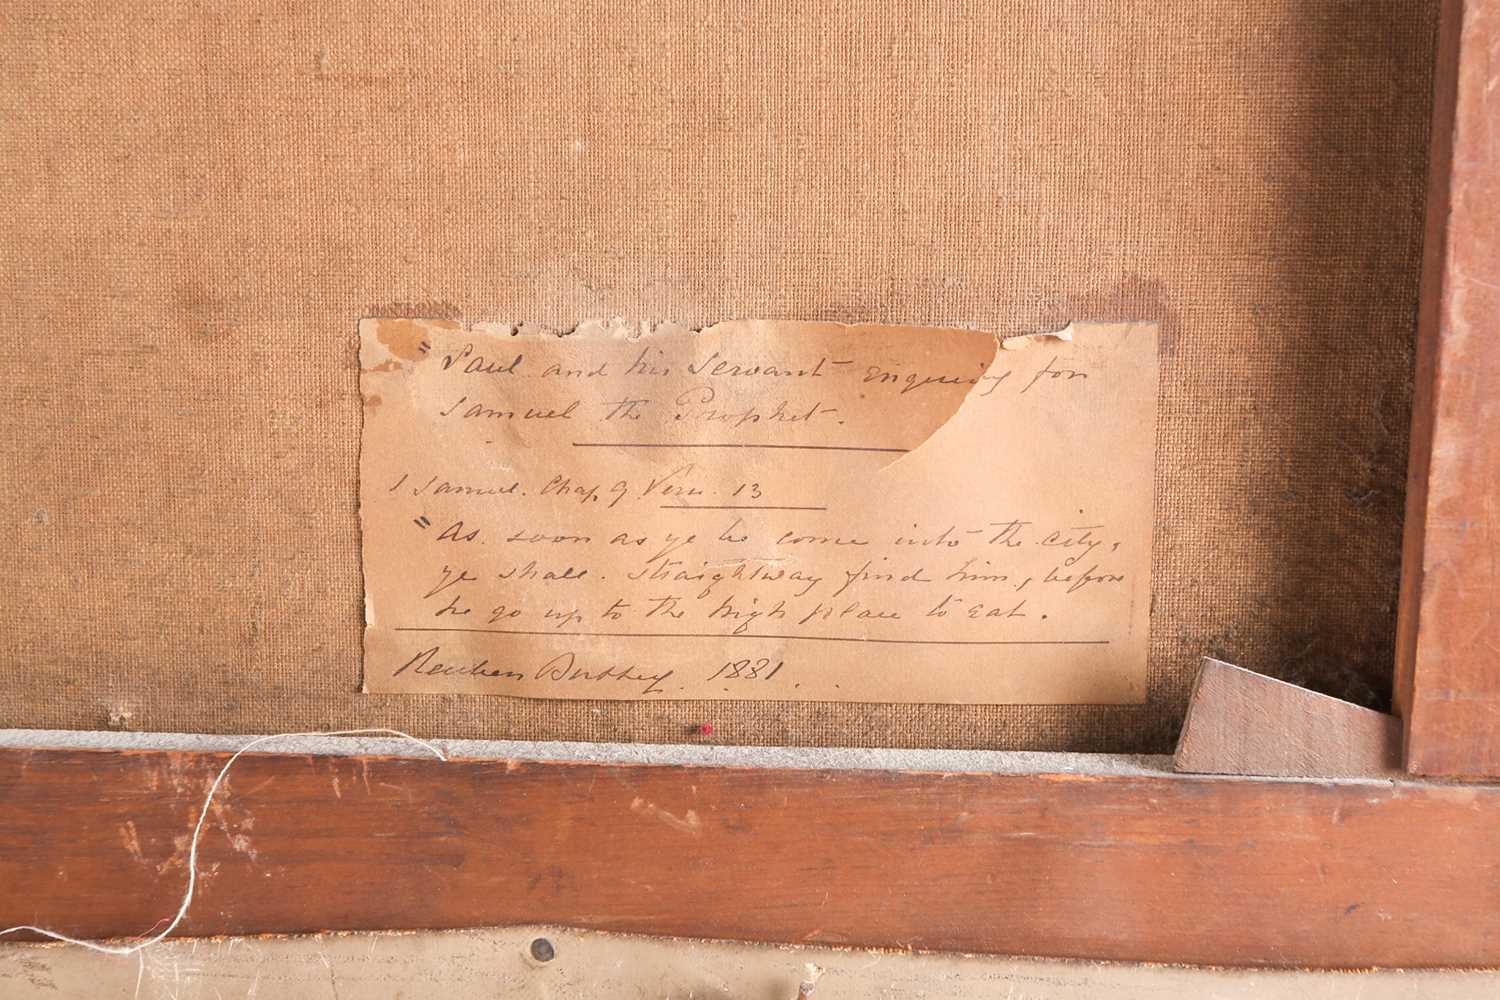 "Saul and his Servant enquiring for
Samuel the Prophet.
1 Samuel. Chap. 9 Vers. 13
"As soon as ye be come into the city,
ye shall. straightway find him, before
he go up to the high place to eat.
Reuben Bussey. 1881.